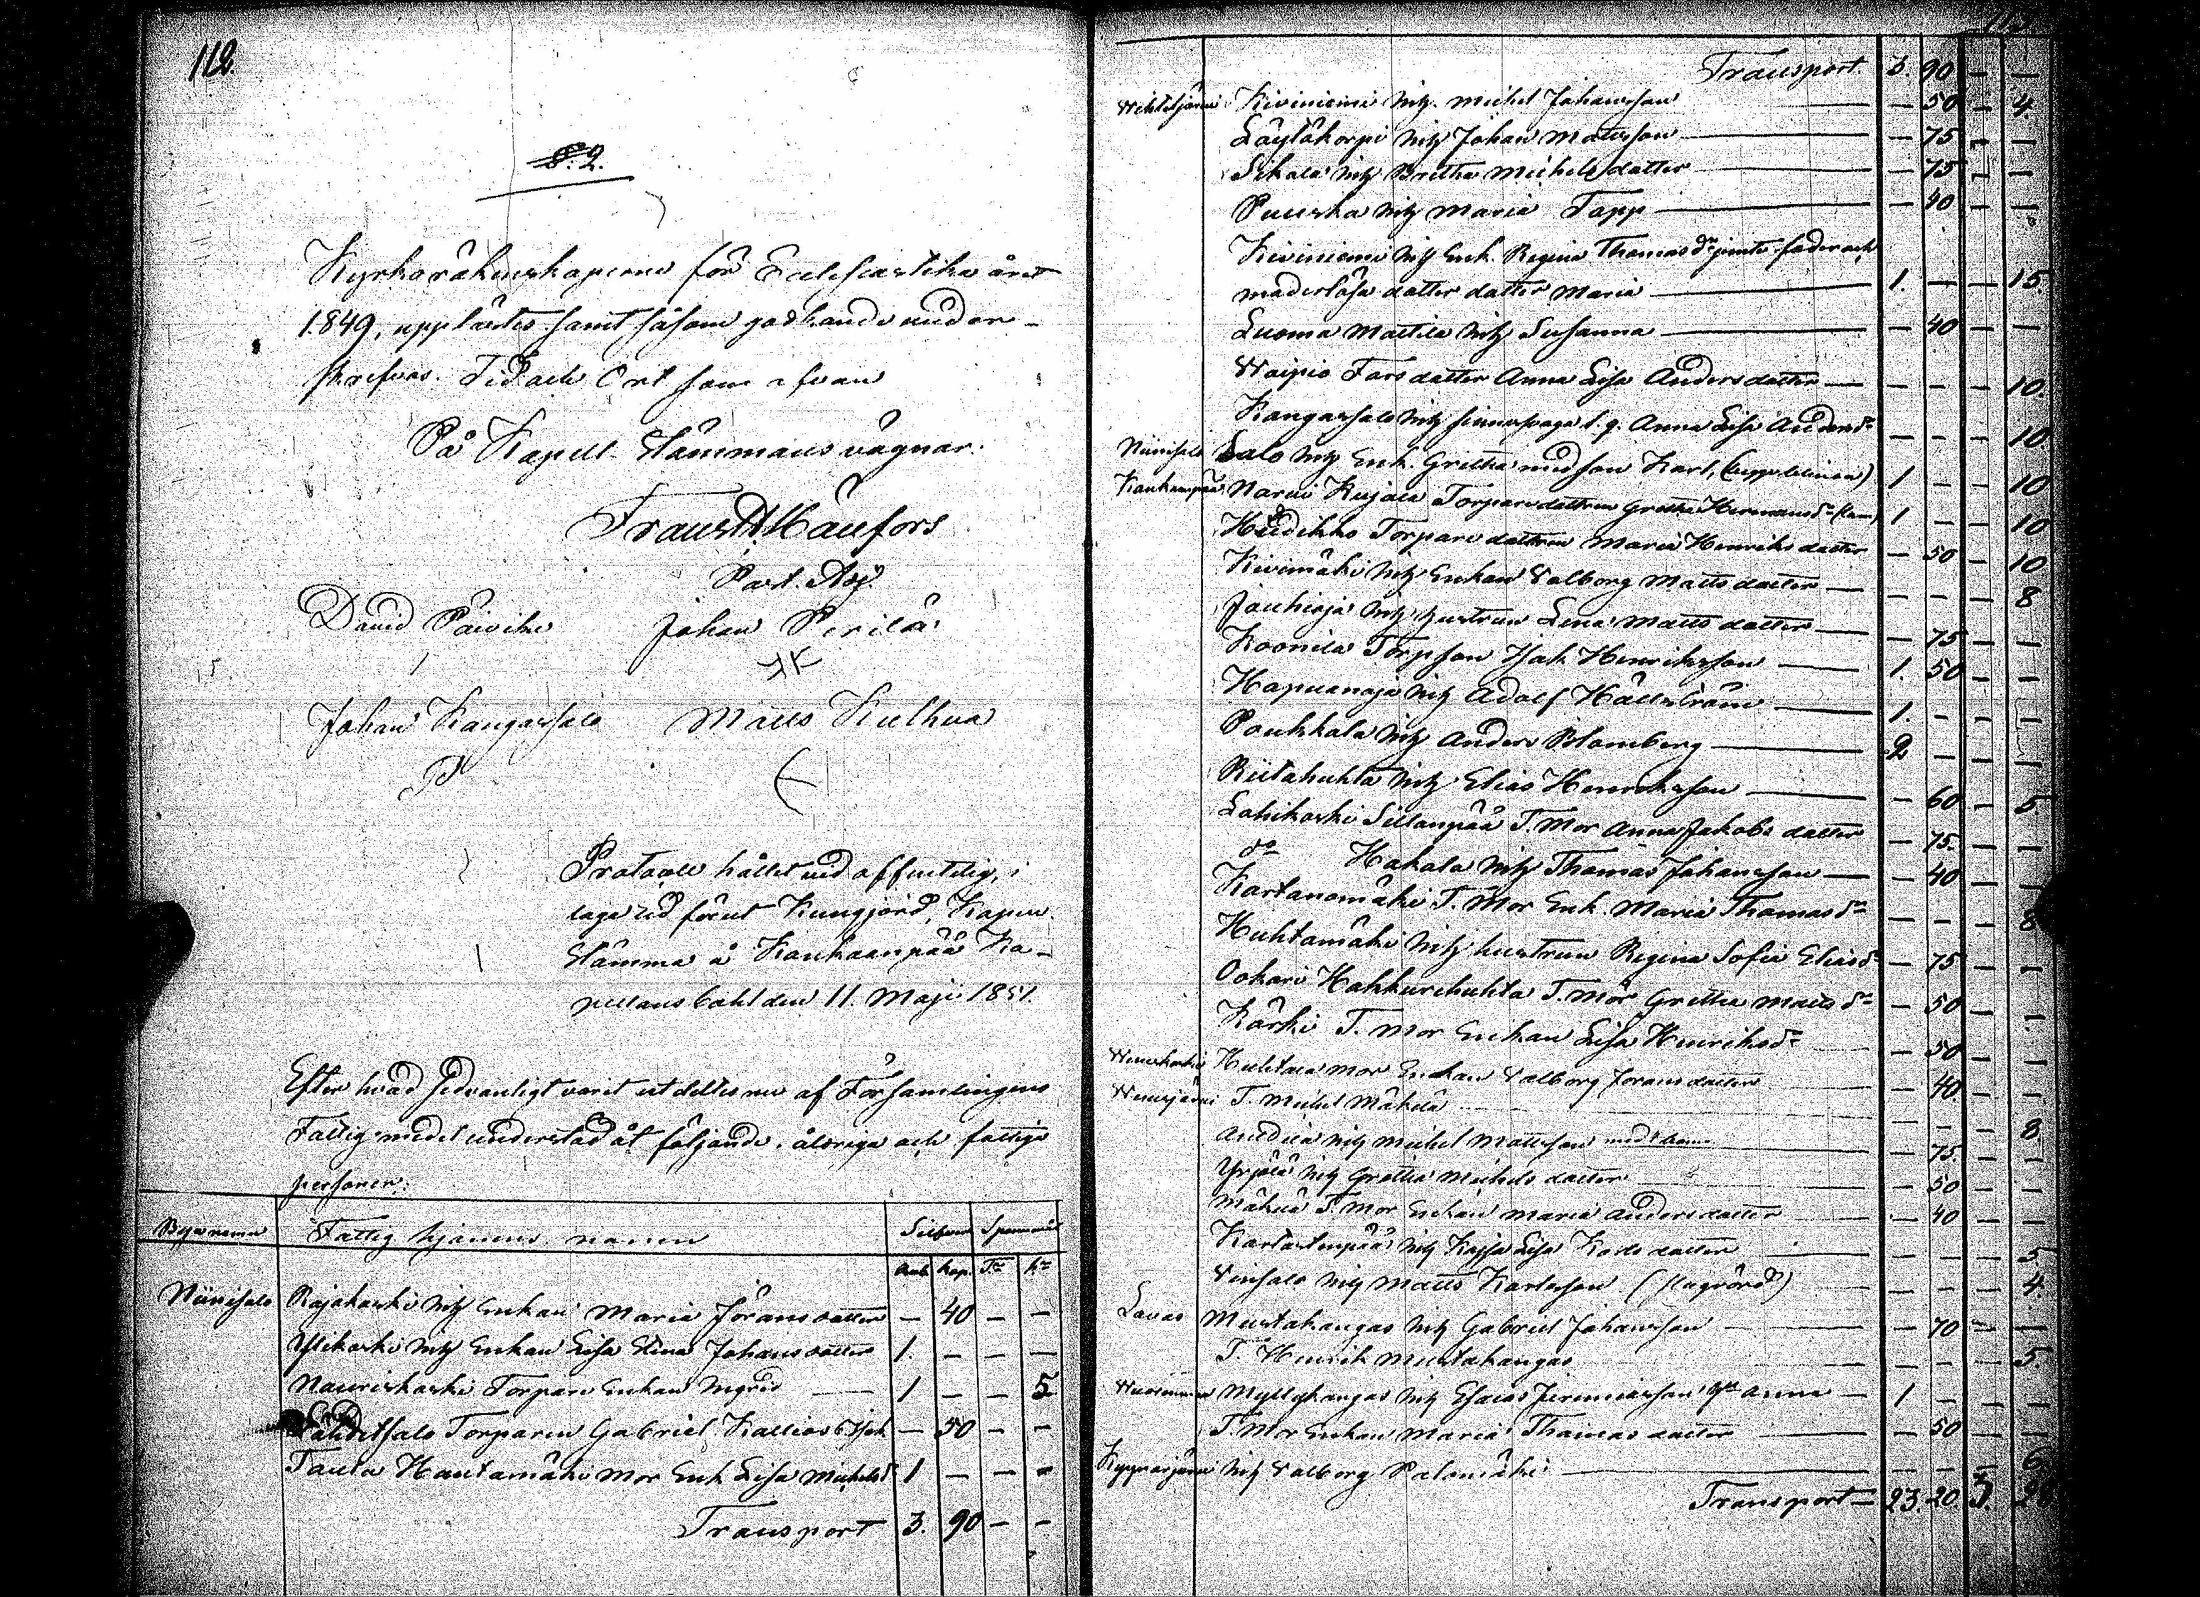 112.
§. 2.
Kyrkoräkenskaperne för Ecclesiastike året
1849, upplästes samt såsom godkände under-
skrefvos. Tid och Ort som ofvan
På Kapell Stämmans vägnar.
Frans Hänfors
Past. Adj.
David Päivike Johan Perilä
Johan Kangassalo Matts Kulkua
Protocoll hållet vid offentelig, i
laga tid förut kungjord, Kapell
Stämma å Kankaanpää Ka-
pellans bohl den 11 Maji 1851.
Efter hvad sedvanligt varit utdeltes nu af Församlingens
Fattig medel understöd åt följande ålderiga och fattige
personer:
Byanamn Fattig hjonens namn Silfver Spannmål
Rub. Kop. Tr Kr
Niinisalo Rajakoski hitz Enkan Maria Göransdotter — 40 — —
Ylikoski hitz Enkan Lisa Stina Johansdotter 1. — — —
Nauriskoski Torpare Enkan Ingrid 1 — — 5
Torparen Gabriel Kallios — 50 — —
Taula Hautamäki mor Enk Lisa Michelsd 1 — — —
Transport 3. 90 — —
Transport 3. 90 — —
Wihteljärvi Kiviniemi hitz Michel Johansson — 50 — 4.
Löytökorpi hitz Johan Mattsson — 75 — —
Sikala hitz Britha Michelsdotter — 75 — —
Puuska hitz Maria Tapp — 40 — —
Kiviniemi hitz Enk. Regina Thomasdr jemte fader och
moderlösa dotter dotter Maria 1. — — 15.
Luoma Mattila hitz Susanna — 40 — —
Waipio Fars dotter Anna Lisa Andersdotter — — — 10.
Kangassalo hitz Anna Lisa Andersdr — — — 10
Niinisalo Salo hitz Enk. Gretha med son Karl, 1 — — 10
Kankanpää Narvi Kujala Torparedottren Gretha Hermansdr 1 — — 10
Torpare dottren Maria Henriksdotter — 50 — 10
Kivimäki hitz Enkan Valborg Mattsdotter — — — 8
Jouhioja hitz hustrun Lena Mattsdotter — 75 — —
Koonila Torp son Isak Henriksson 1. 50 — —
Hapuanoja hitz Adolf Hällström 1. — — —
Poukkala hitz Anders Blomberg 2 — — —
Riitahuhta hitz Elias Henriksson — 60 — 5.
Lohikoski Sillanpää T. Mor Anna Jakobsdotter — 75. — —
do Hakala hitz Thomas Johansson — 40 — —
Kortanomäki T. Mor Enk. Maria Thomasdr — — — 8
Huhtamäki hitz hustrun Regina Sofia Eliasdr — 75 — —
Ookari Hakkurihuhta T. mor Gretha Mattsdr — 50 — —
Kärki T. Mor Enkan Lisa Henriksdr — 50 — —
Huhtala mor Enkan Valborg Joransdotter — 40. — —
Wenesjärvi T. Michel Mäkelä — — — 8
Anttila hitz Michel Mattsson — 75. — —
Yrjälä hitz Gretha Michelsdotter — 50 — —
Mäkelä T. mor Enkan Maria Andersdotter — 40 — —
hitz Kajsa Lisa Karlsdotter — — — 5.
Vinsalo hitz Matts Karlsson (slagrörd) — — — 4.
Lavas Mustakangas hitz Gabriel Johansson — 70 — —
T. Henrik Mustakangas — — — 5
Myllykangas hitz Esaias Jeremiasson Anna 1 — — —
T. Mor Enkan Maria Thomasdotter — 50 — —
Kyynärjärvi hitz Valborg Palomäki — — — 6
Transport — 23. 20. 5. 28